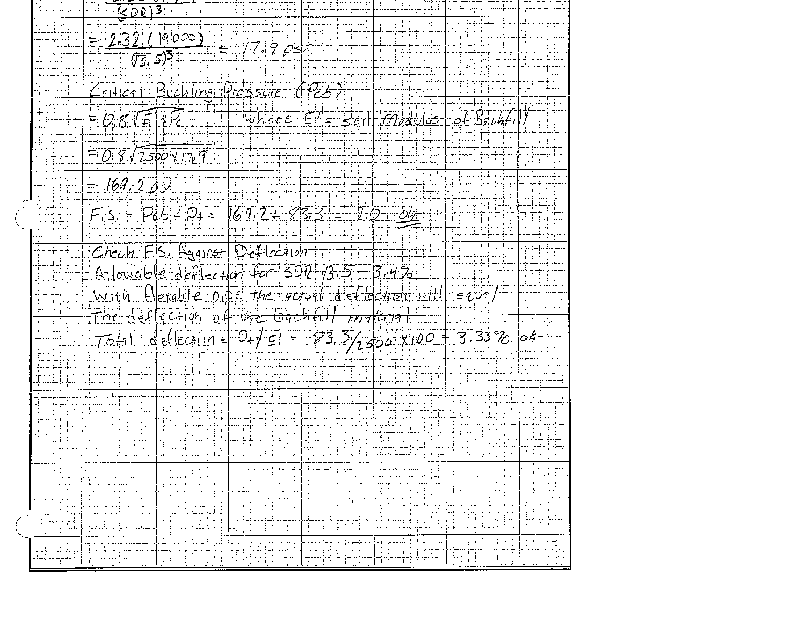 (SDR)³
= 2.32 (19000) / (13.5)³ = 17.9 psi
Critical Buckling Pressure (Pcb)
= 0.8 √E' × Pc where E' = Soil Modulus of Backfill
= 0.8 √2500 × 17.9
= 169.2 psi
F.S. = Pcb ÷ Pt = 169.2 ÷ 83.3 = 2.0 ok
Check F.S. Against Deflection
Allowable deflection for SDR 13.5 = 3.4%
With flexible pipe the actual deflection will equal
The deflection of the backfill material
Total deflection = Pt/E' = 83.3/2500 × 100 = 3.33% ok